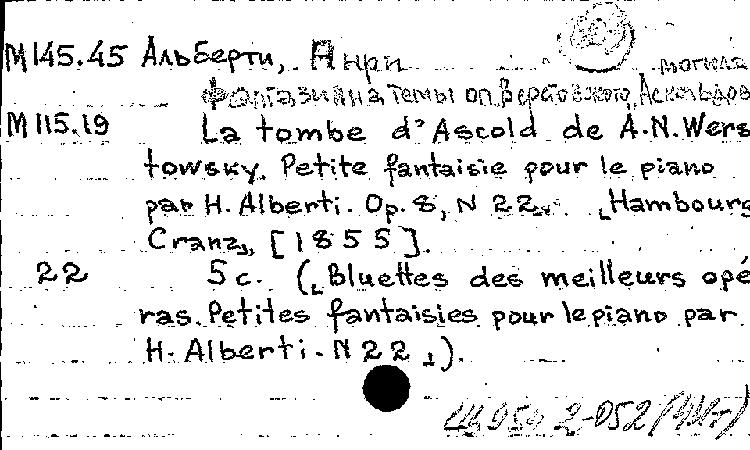 М 145.45 Альберти, Анри
могила
Фантазия на темы оп. Верстовского, Аскольдов
М 115.19 La tombe d'Ascold de A.N.Wers
towsky. Petite fantaisie pour le piano
par H. Alberti. Op. 8, N 22. Hambourg
Cranz, [1855].
22 5 c. (Bluettes des meilleurs opé
ras. Petites fantaisies pour le piano par
H. Alberti. N 22).
2-052